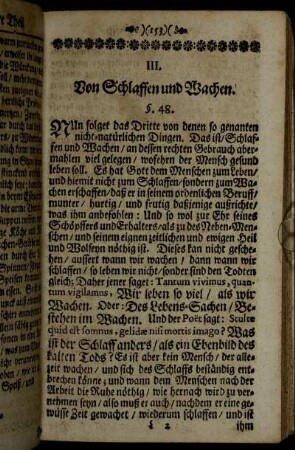 )(153)(
III.
Von Schlaffen und Wachen.
§. 48.
NUn folget das Dritte von denen so genanten
nicht-natürlichen Dingen. Das ist/Schlaf-
fen und Wachen/ an dessen rechten Gebrauch aber-
mahlen viel gelegen/ wofehrn der Mensch gesund
leben soll. Es hat Gott dem Menschen zum Leben/
und hiemit nicht zum Schlaffen/sondern zum Wa-
chen erschaffen/daß er in seinem ordenlichen Beruff/
munter/ hurtig/ und frutig dasjenige außrichte/
was ihm anbefohlen: Und so wol zur Ehr seines
Schöpffers und Erhalters/als zu des Neben-Men-
schen/ und seinem eignen zeitlichen und ewigen Heil
und Wolseyn nöthig ist. Dieses kan nicht gesche-
hen/ aussert wann wir wachen/ dann wann wir
schlaffen/ so leben wir nicht/sonder sind den Todten
gleich; Daher jener saget: Tantum vivimus, quan-
tum vigilamus, Wir leben so viel/ als wir
Wachen. Oder: Des Lebens-Sachen/ Be-
stehen im Wachen. Und der Poët sagt: Stulte
quid est somnus, gelidæ nisi mortis imago? Was
ist der Schlaff anders/ als ein Ebenbild des
kalten Tods? Es ist aber kein Mensch/ der alle-
zeit wachen/ und sich des Schlaffs beständig ent-
brechen könne; und wann dem Menschen nach der
Arbeit die Ruhe nöthig/ wie hernach wird zu ver-
nehmen seyn/ also muß er auch/ nachdem er eine ge-
wüsse Zeit gewachet/ wiederum schlaffen/ und ist
ihm